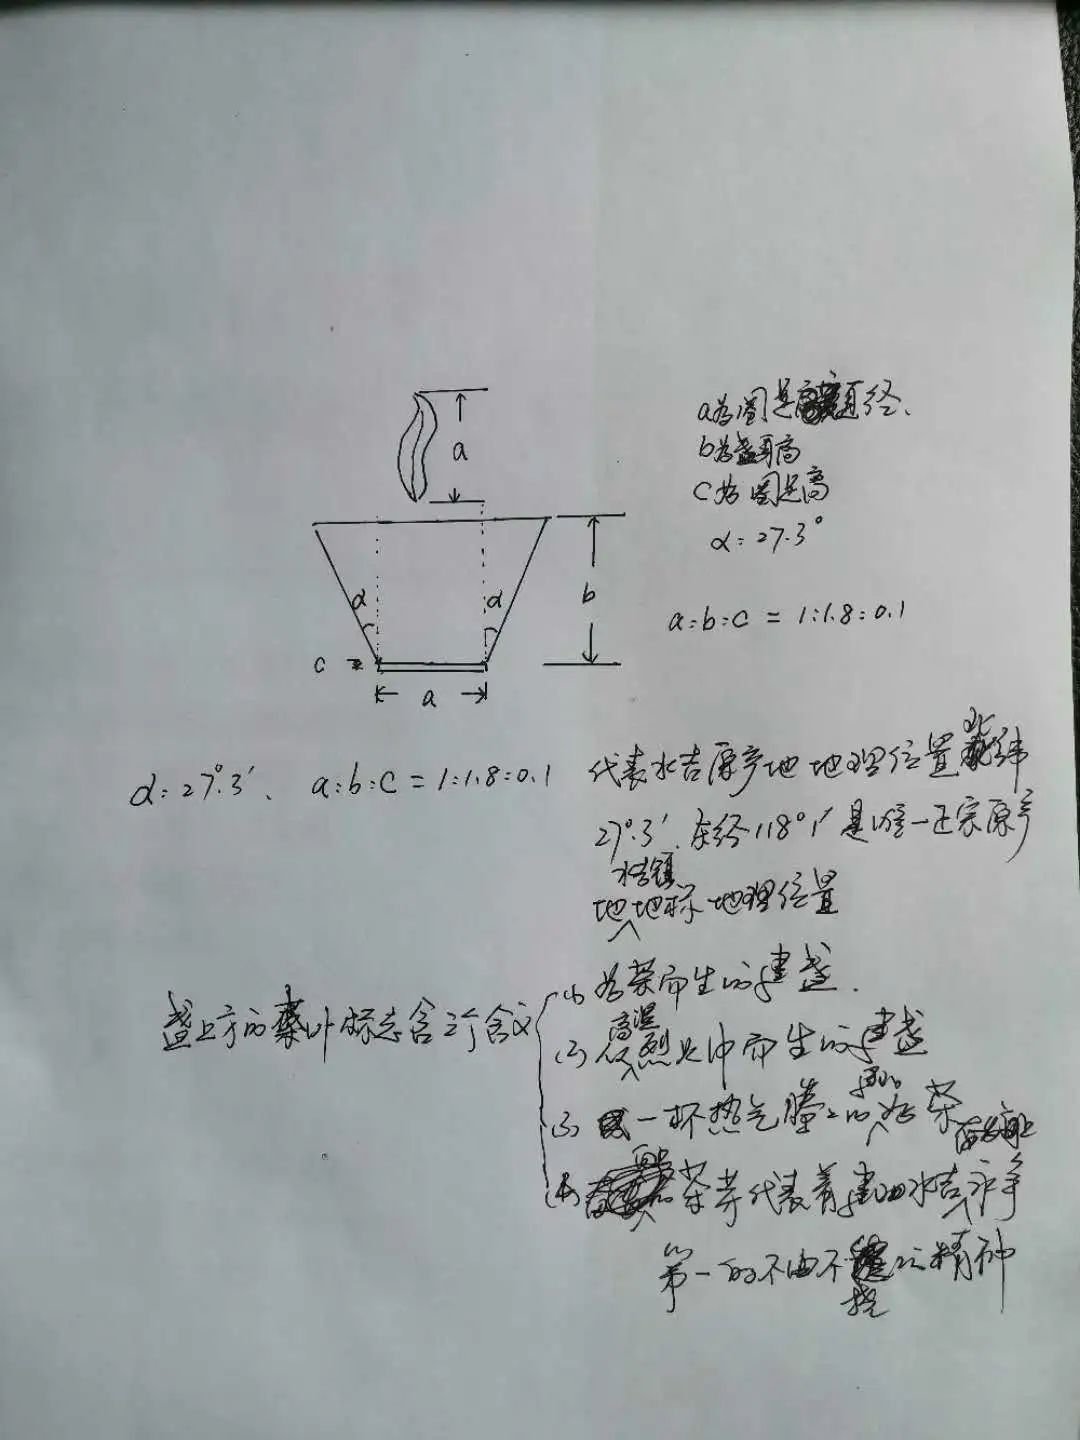 a
a为圈足直径、
b为盏身高
c为圈足高
α=27.3°
α
α
b
a:b:c = 1:1.8:0.1
c
a
α=27°.3′、 a:b:c = 1:1.8:0.1
代表水吉原产地地理位置北纬
27°.3′.东经118°1′是唯一正宗原产
水吉镇
地地标地理位置
盏上方的茶叶标志含三个含义
(1) 为茶而生的建盏.
高温
(2) 从烈火中而生的建盏
(3) 一杯热气腾腾的好茶
(4) 茶芽代表着建水吉永争
第一的不曲不挠的精神